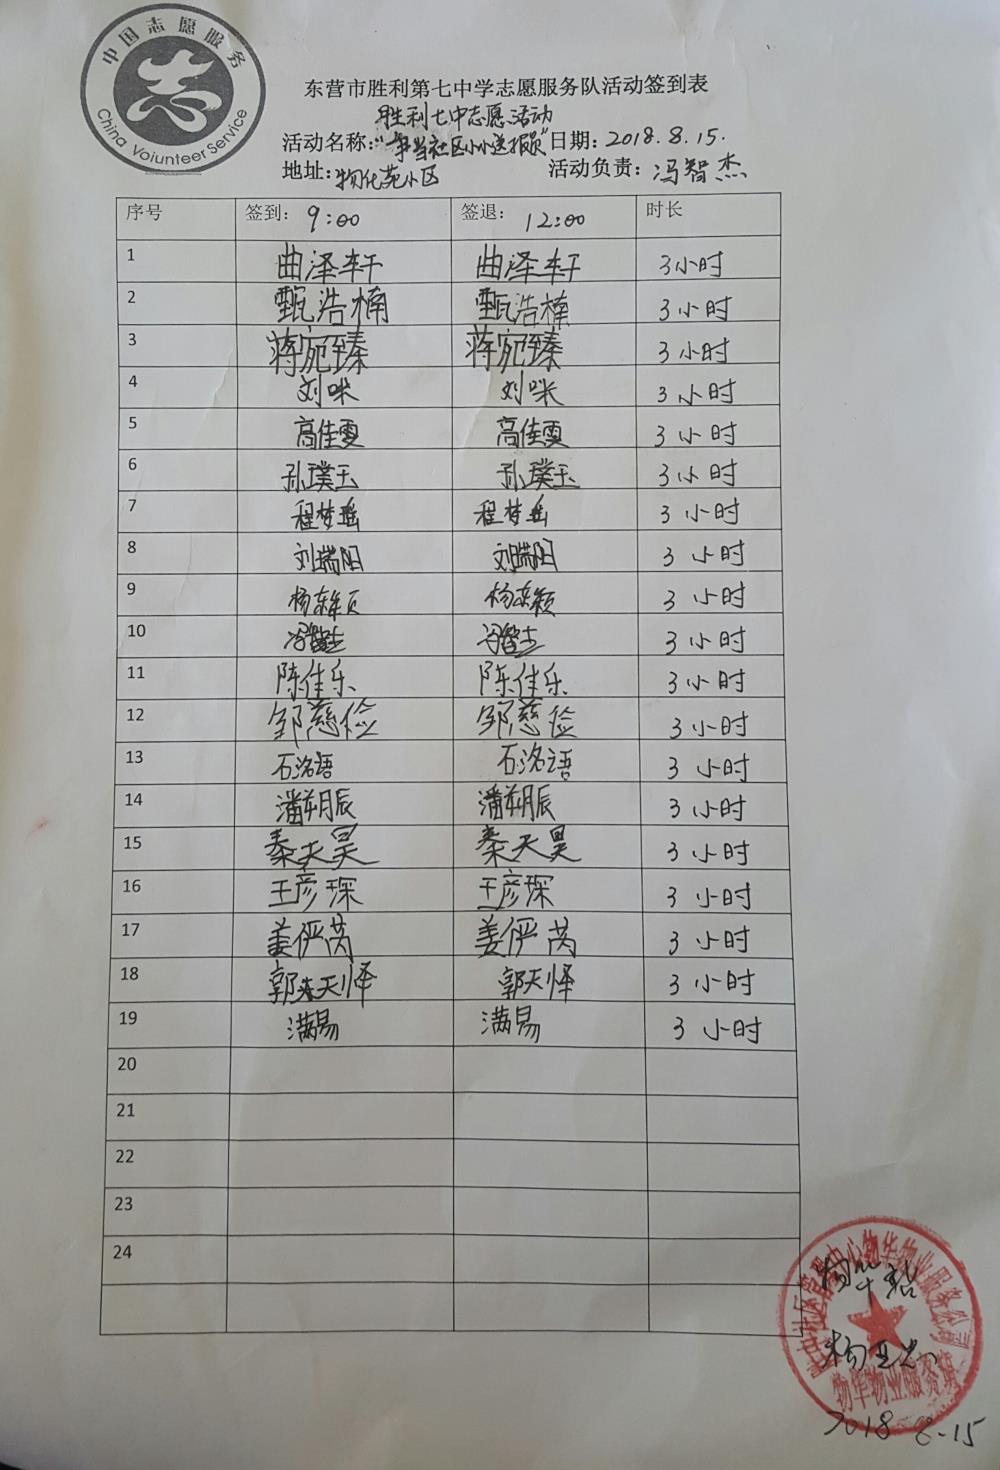 中国志愿服务
China Volunteer Service
东营市胜利第七中学志愿服务队活动签到表
胜利七中志愿活动
活动名称："争当社区小小送报员" 日期：2018.8.15.
地址：物华苑小区 活动负责：冯智杰
序号 签到：9:00 签退：12:00 时长
1 曲泽轩 曲泽轩 3小时
2 甄浩楠 甄浩楠 3小时
3 蒋宛臻 蒋宛臻 3小时
4 刘咪 刘咪 3小时
5 高佳雯 高佳雯 3小时
6 孙璞玉 孙璞玉 3小时
7 程梦瑶 程梦瑶 3小时
8 刘瑞阳 刘瑞阳 3小时
9 杨东颖 杨东颖 3小时
10 冯智杰 冯智杰 3小时
11 陈佳乐 陈佳乐 3小时
12 邹慈俭 邹慈俭 3小时
13 石洺语 石洺语 3小时
14 潘朔辰 潘朔辰 3小时
15 秦天昊 秦天昊 3小时
16 王彦琛 王彦琛 3小时
17 姜俨芮 姜俨芮 3小时
18 郭天怿 郭天怿 3小时
19 满易 满易 3小时
20
21
22
23
24
物华物业服务公司
物华站
物华物业服务站
2018 8-15